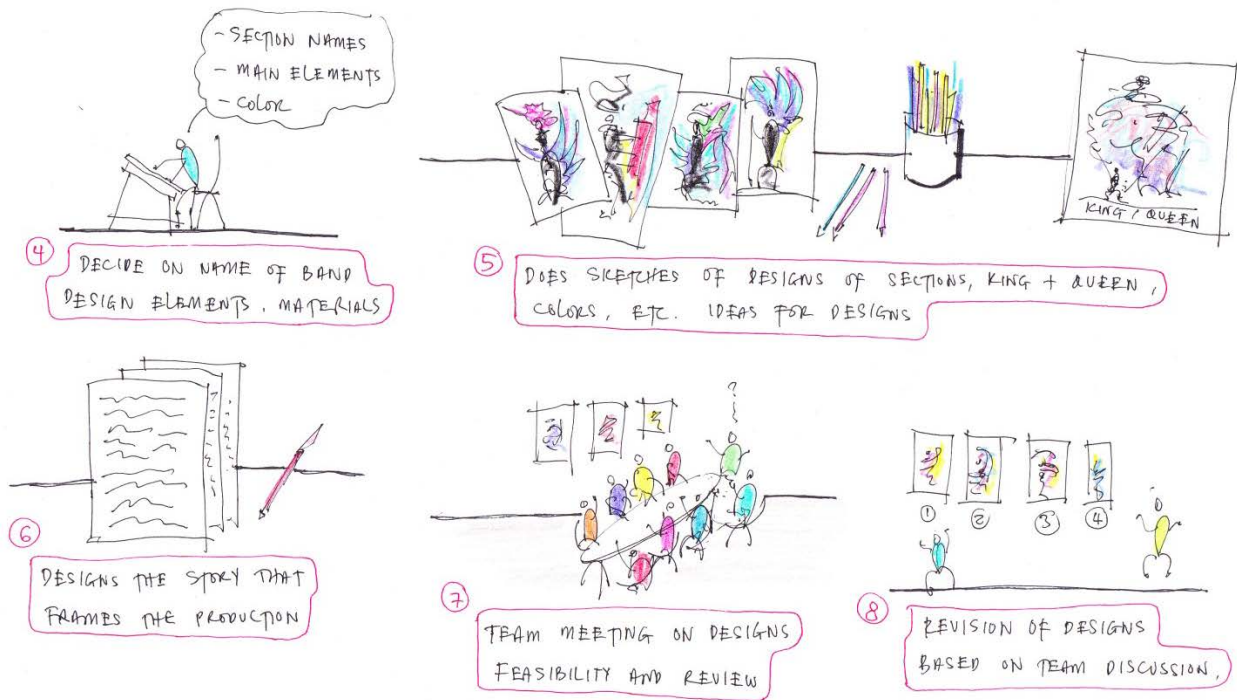 - SECTION NAMES
- MAIN ELEMENTS
- COLOR
4
DECIDE ON NAME OF BAND
DESIGN ELEMENTS, MATERIALS
KING / QUEEN
5
DOES SKETCHES OF DESIGNS OF SECTIONS, KING + QUEEN,
COLORS, ETC. IDEAS FOR DESIGNS
6
DESIGNS THE STORY THAT
FRAMES THE PRODUCTION
?
7
TEAM MEETING ON DESIGNS
FEASIBILITY AND REVIEW
1 2 3 4
8
REVISION OF DESIGNS
BASED ON TEAM DISCUSSION.